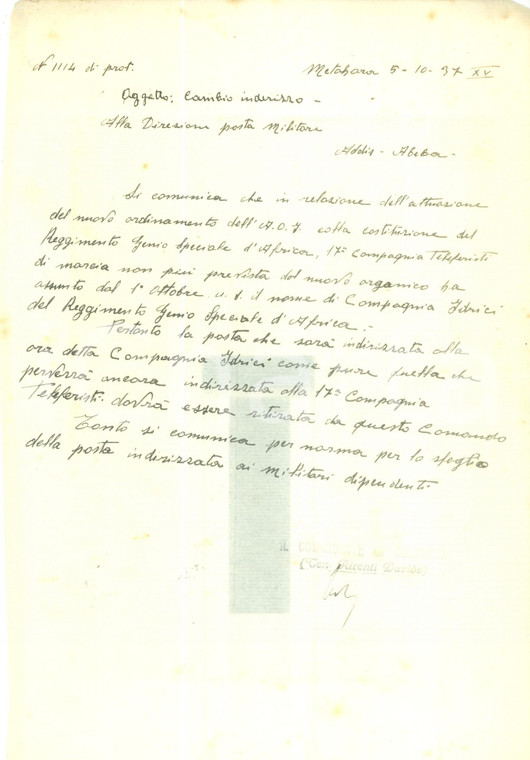 N° 1114 di prot.
Metahara 5-10-37 XV
Oggetto; Cambio inderizzo -
Alla Direzione posta Militare
Addis-Abeba-
Si comunica che in relazione dell'attuazione
del nuovo ordinamento dell'A.O.I. colla costituzione del
Reggimento Genio Speciale d'Africa, 17ª Compagnia Teleferisti
di marcia non più prevista dal nuovo organico ha
assunto dal 1° Ottobre u.s. il nome di Compagnia Idrici
del Reggimento Genio Speciale d'Africa.-
Pertanto la posta che sarà indirizzata alla
ora detta Compagnia Idrici come pure quella che
perverrà ancora indirizzata alla 17ª Compagnia
Teleferisti dovrà essere ritirata da questo Comando
Tanto si comunica per norma per lo spoglio
della posta inderizzata ai militari dipendenti.
IL
(Ten. Davide)